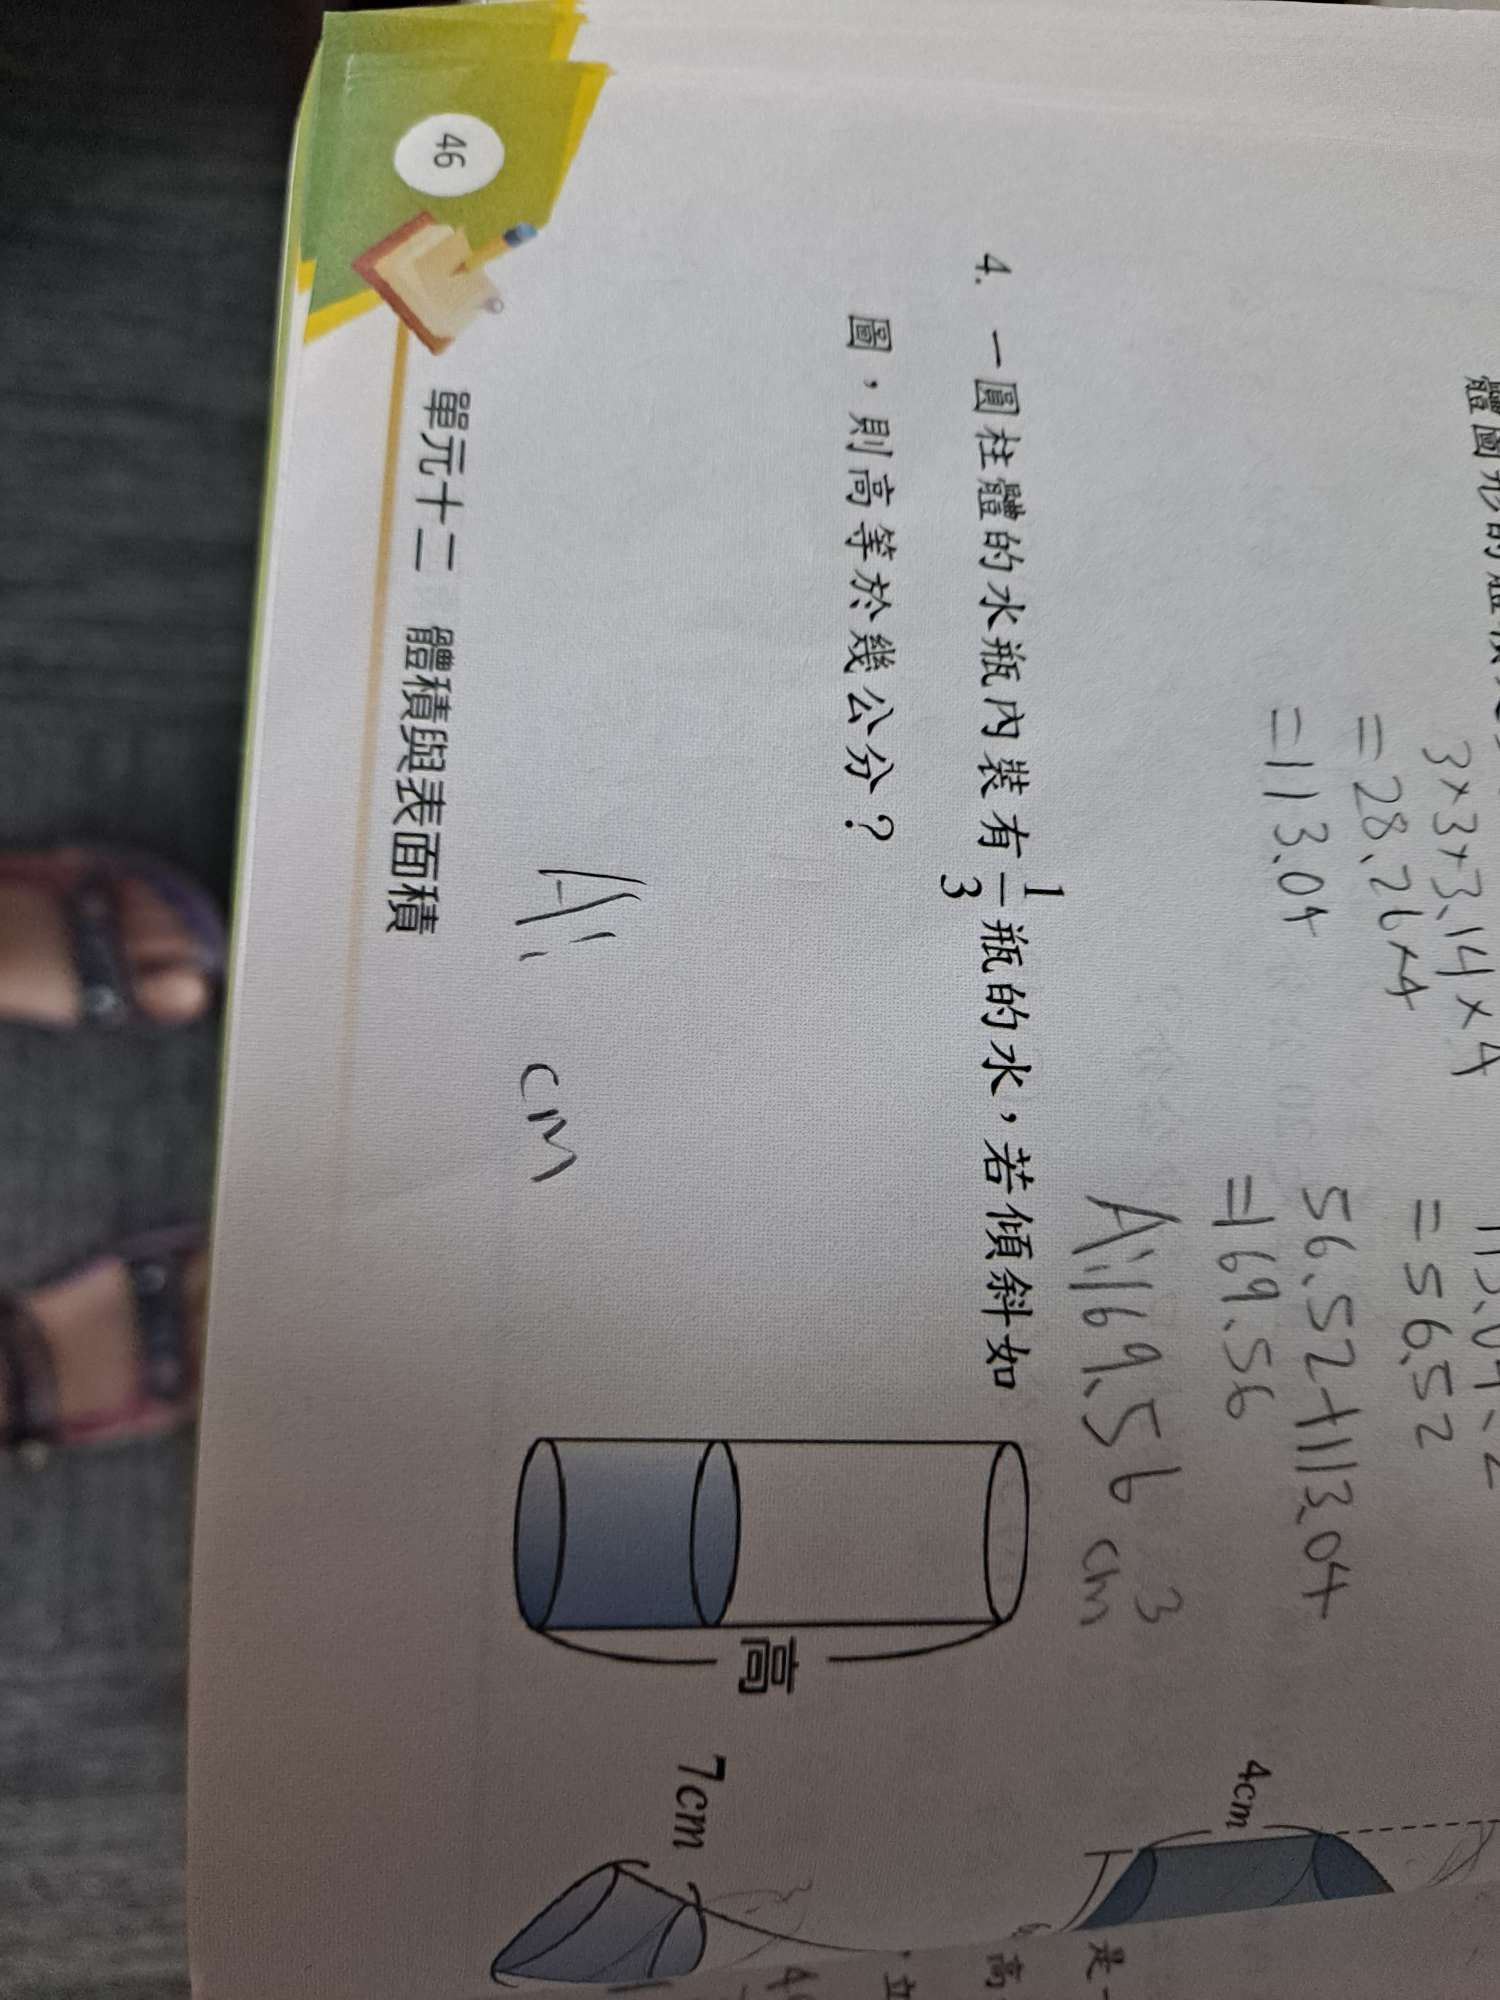 3×3×3.14×4
=28.26×4
=113.04
=56.52
56.52+113.04
=169.56
A:169.56 cm³
4cm
4. 一圓柱體的水瓶內裝有1/3瓶的水，若傾斜如
圖，則高等於幾公分？
高
7cm
A: cm
46
單元十二 體積與表面積